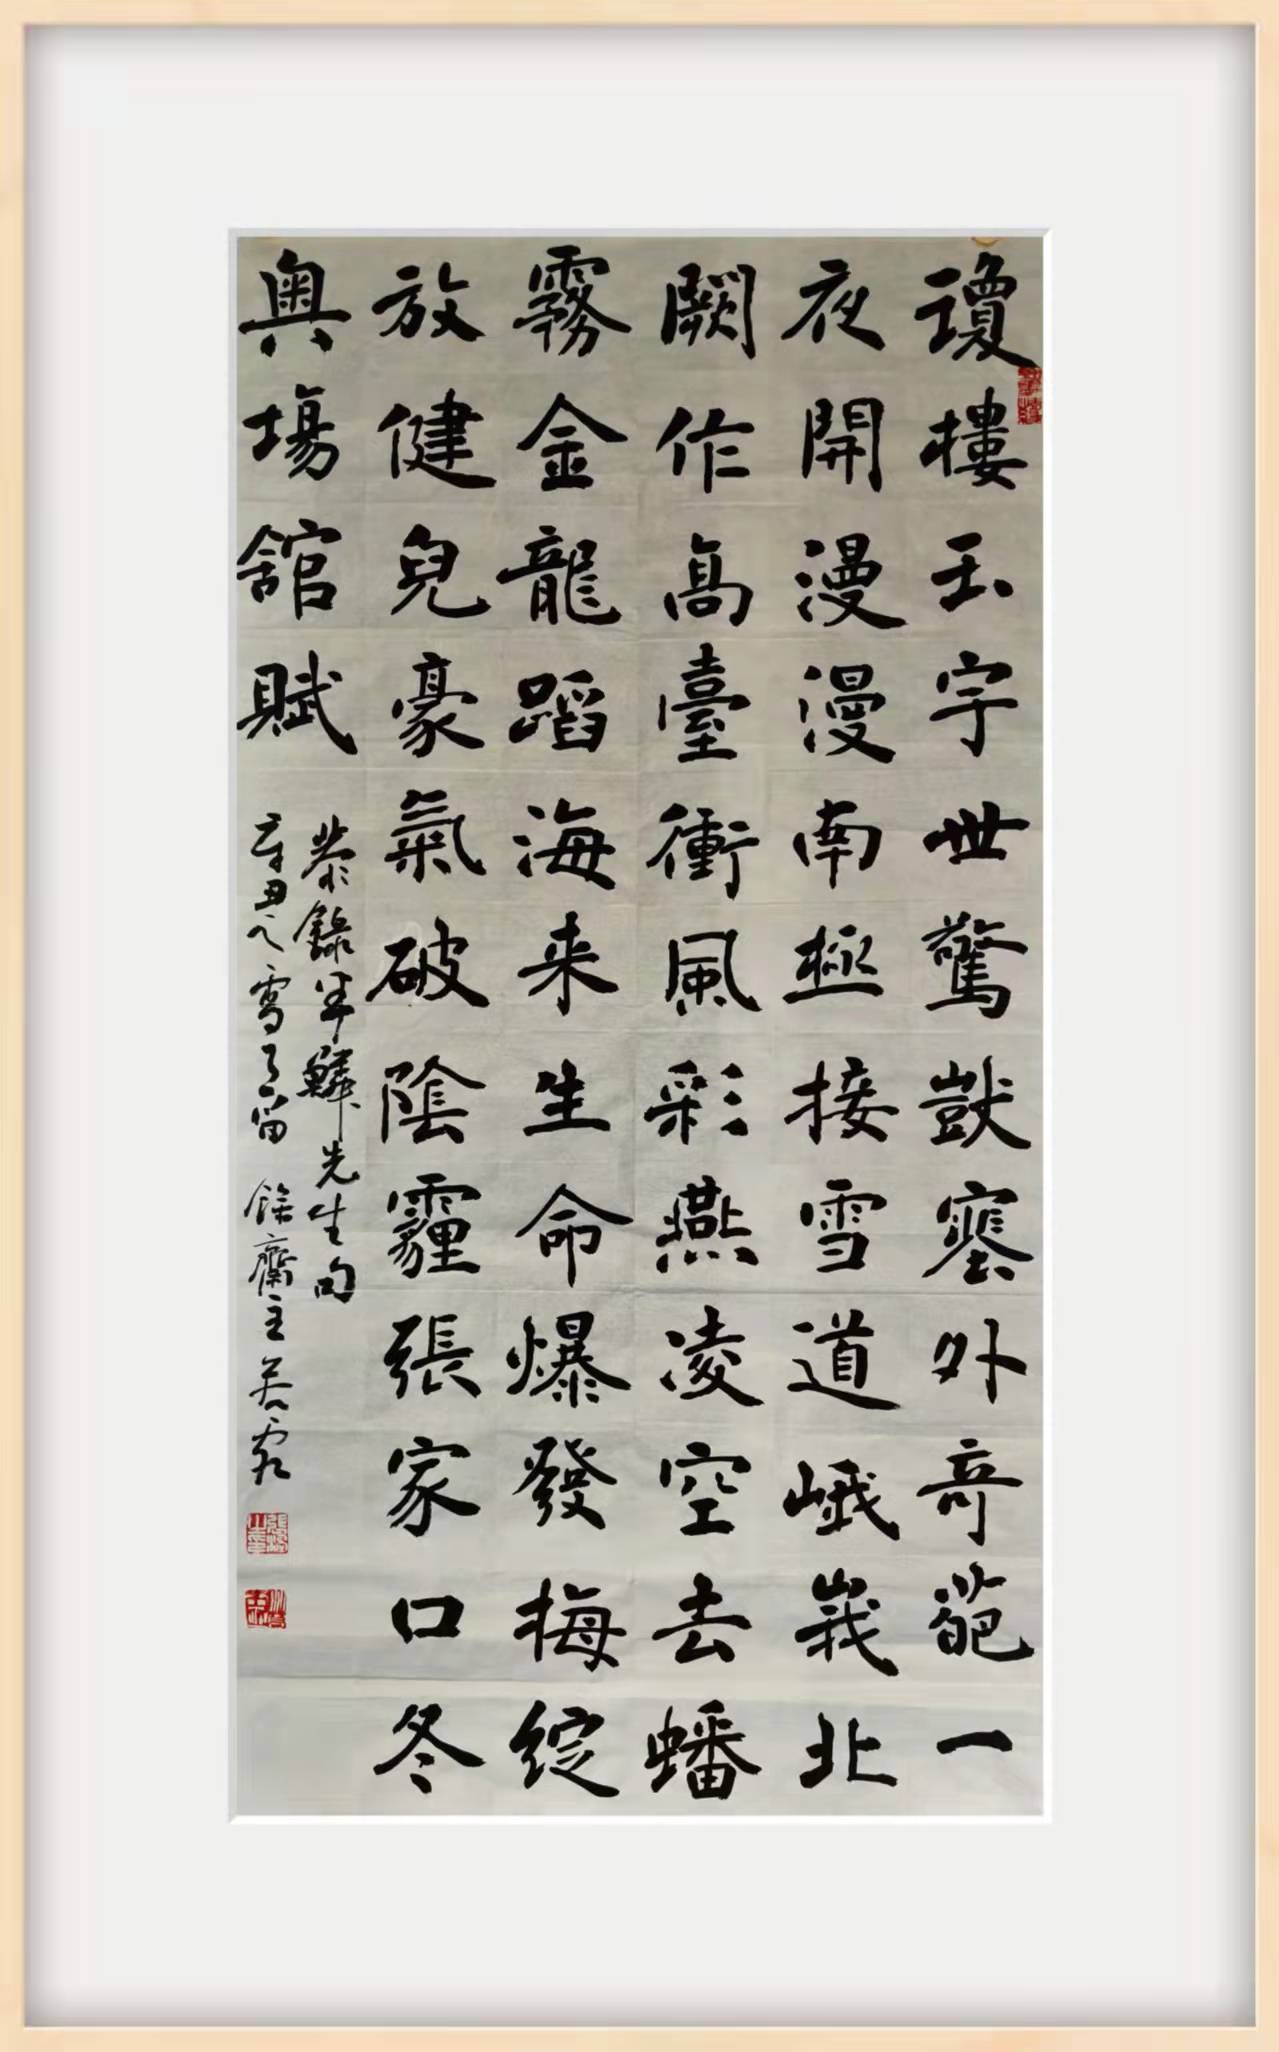 瓊樓玉宇世驚獃塞外奇葩一
夜開漫漫南極接雪道峨峩北
闕作高臺衝風彩燕凌空去蟠
霧金龍蹈海来生命爆發梅綻
放健兒豪氣破陰霾張家口冬
奧場館賦
恭錄半麟先生句
辛丑大雪了留 餘齋主若霖